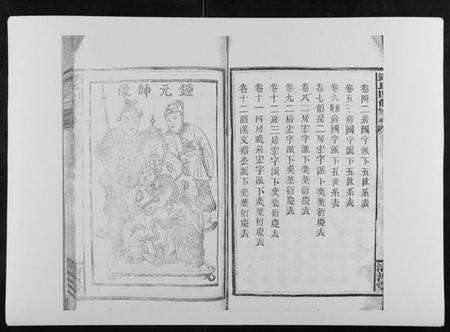 卷四二房國字派下五世系表
卷五三房國字派下五世系表
卷六四房國字派下五世系表
卷七伯房二房宏字派下奕葉衍慶表
卷八二房宏字派下奕葉衍慶表
卷九二房宏字派下奕葉衍慶表
卷十二房三房宏字派下奕葉衍慶表
卷十一四房晚房宏字派下奕葉衍慶表
卷十二酒漢文裕公派下奕葉衍慶表
鍾元帥像